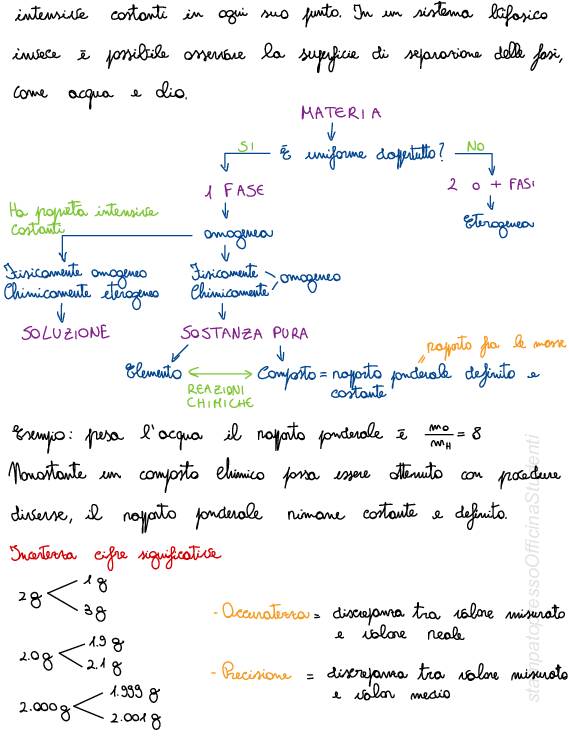 intensive costanti in ogni suo punto. In un sistema bifasico
invece è possibile osservare la superficie di separazione delle fasi,
come acqua e olio.
MATERIA
SI È uniforme dappertutto? NO
1 FASE 2 o + FASI
Ha proprietà intensive
costanti
omogenea Eterogenea
Fisicamente omogeneo
Chimicamente eterogeneo
Fisicamente
Chimicamente omogeneo
SOLUZIONE SOSTANZA PURA
rapporto fra le masse
Elemento Composto = rapporto ponderale definito e
costante
REAZIONI
CHIMICHE
Esempio: presa l'acqua il rapporto ponderale è mO/mH = 8
Nonostante un composto chimico possa essere ottenuto con procedure
diverse, il rapporto ponderale rimane costante e definito.
Incertezza cifre significative
2 g 1 g
3 g
2.0 g 1.9 g
2.1 g
2.000 g 1.999 g
2.001 g
- Accuratezza = discrepanza tra valore misurato
e valore reale
- Precisione = discrepanza tra valore misurato
e valor medio
stampatopressoOfficinaStudenti